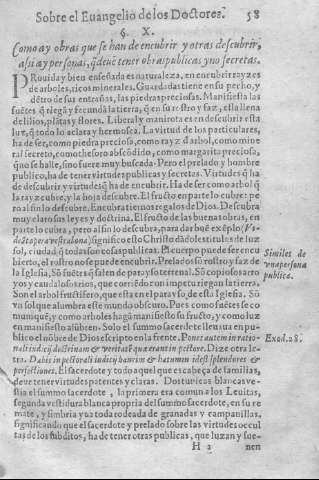 Sobre el Euangelio de los Doctores. 58
§. X.
Como ay obras que se han de encubrir y otras descubrir,
assi ay personas, q̃ deuẽ tener obras publicas y no secretas.
PRouida y bien enseñada es naturaleza, en encubrir rayzes
de arboles, ricos minerales. Guardadas tiene en su pecho, y
dẽtro de sus entrañas, las piedras preciosas. Manifiesta las
fuẽtes q̃ riega y fecundã la tierra, q̃ en su rostro y faz, està llena
de lilios, platas y flores. Liberal y manirota es en descubrir esta
luz, q̃ todo lo aclara y hermosea. La virtud de los particulares,
ha de ser, como piedra preciosa, como rayz d̃ arbol, como mine
ral secreto, como thesoro abscõdido, como margarita preciosa,
que se halle, sino fuere muy buscada. Pero el prelado y hombre
publico, ha de tener virtudes publicas y secretas. Virtudes q̃ ha
de descubrir y virtudes q̃ ha de encubrir. Ha de ser como arbol q̃
la rayz cubre, y la hoja descubre. El fructo en parte lo cubre: pe
ro al fin lo descubre. Encubra tiernos regalos de Dios. Descubra
muy claro sus leyes y doctrina. El fructo de las buenas obras, en
parte lo cubra, pero al fin lo descubra, para dar buẽ exẽplo; (Vi-
deãt opera vestra bona) significo esto Christo dãdoles titulos de luz
sol, ciudad q̃ todas son cosas publicas. El cuerpo puede ser encu
bierto, el rostro no se puede encubrir. Prelados sõ rostro y faz de
la Iglesia, Sõ fuẽtes q̃ salen de parayso terrenal. Sõ copiosos arro
yos y caudalosos rios, que corriẽdo con impetu riegan la tierra.
Son el arbol fructifero, que esta en el parayso, de esta Iglesia. Sõ
vn sol que alumbra este mundo obscuro. Pues como fuẽtes se co
muniquẽ, y como arboles hagã manifiesto su fructo, y como luz
en manifiesto alũbren. Solo el summo sacerdote lleuaua en pu-
blico el nõbre de Dios escripto en la frente. Pones autem in ratio-
nali iudicij doctrinam & veritatẽ quæ erant in pectore. Dize otra le-
tra. Dabis in pectorali iudicij hanrim & hatumim idest splendores &
perfectiones. El sacerdote y todo aquel que es cabeça de familias,
deue tener virtudes patentes y claras. Dos tunicas blancas ve-
stia el summo sacerdote, la primera era comun a los Leuitas,
segunda vestidura blanca propria del summo sacerdote, en su re
mate, y simbria yua toda rodeada de granadas y campanillas,
significando que el sacerdote y prelado sobre las virtudes occul
tas de los subditos, ha de tener otras publicas, que luzan y sue-
H 2 nen
Similes de
vna persona
publica.
Exod. 28.